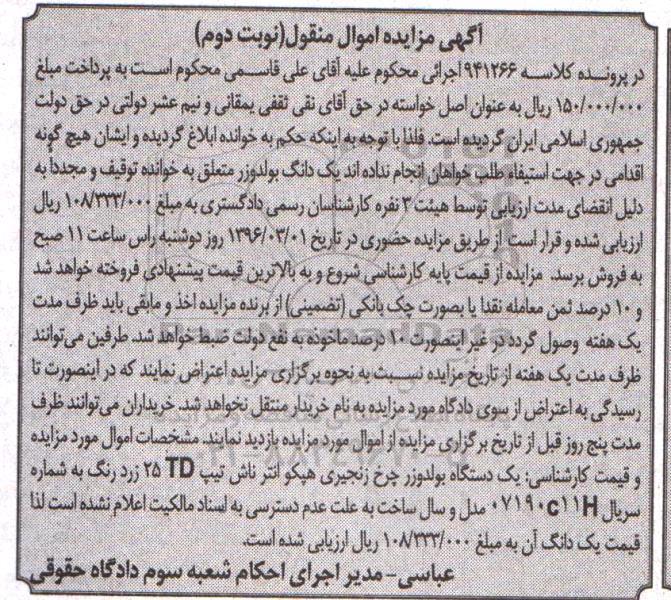 آگهی مزایده اموال منقول(نوبت دوم)
در پرونده کلاسه ۹۴۱۲۶۶ اجرائی محکوم علیه آقای علی قاسمی محکوم است به پرداخت مبلغ
۱۵۰/۰۰۰/۰۰۰ ریال به عنوان اصل خواسته در حق آقای نقی ثقفی یمقانی و نیم عشر دولتی در حق دولت
جمهوری اسلامی ایران گردیده است. فلذا با توجه به اینکه حکم به خوانده ابلاغ گردیده و ایشان هیچ گونه
اقدامی در جهت استیفاء طلب خواهان انجام نداده اند یک دانگ بولدوزر متعلق به خوانده توقیف و مجدداً به
دلیل انقضای مدت ارزیابی توسط هیئت ۳ نفره کارشناسان رسمی دادگستری به مبلغ ۱۰۸/۳۳۳/۰۰۰ ریال
ارزیابی شده و قرار است از طریق مزایده حضوری در تاریخ ۱۳۹۶/۰۳/۰۱ روز دوشنبه راس ساعت ۱۱ صبح
به فروش برسد. مزایده از قیمت پایه کارشناسی شروع و به بالاترین قیمت پیشنهادی فروخته خواهد شد
و ۱۰ درصد ثمن معامله نقدا یا بصورت چک بانکی (تضمینی) از برنده مزایده اخذ و مابقی باید ظرف مدت
یک هفته وصول گردد در غیر اینصورت ۱۰ درصد ماخوذه به نفع دولت ضبط خواهد شد. طرفین می‌توانند
ظرف مدت یک هفته از تاریخ مزایده نسبت به نحوه برگزاری مزایده اعتراض نمایند که در اینصورت تا
رسیدگی به اعتراض از سوی دادگاه مورد مزایده به نام خریدار منتقل نخواهد شد. خریداران می توانند ظرف
مدت پنج روز قبل از تاریخ برگزاری مزایده از اموال مورد مزایده بازدید نمایند. مشخصات اموال مورد مزایده
و قیمت کارشناسی: یک دستگاه بولدوزر چرخ زنجیری هپکو انتر ناش تیپ TD ۲۵ زرد رنگ به شماره
سریال ۰۷۱۹۰c۱۱H مدل و سال ساخت به علت عدم دسترسی به اسناد مالکیت اعلام نشده است لذا
قیمت یک دانگ آن به مبلغ ۱۰۸/۳۳۳/۰۰۰ ریال ارزیابی شده است.
عباسی-مدیر اجرای احکام شعبه سوم دادگاه حقوقی